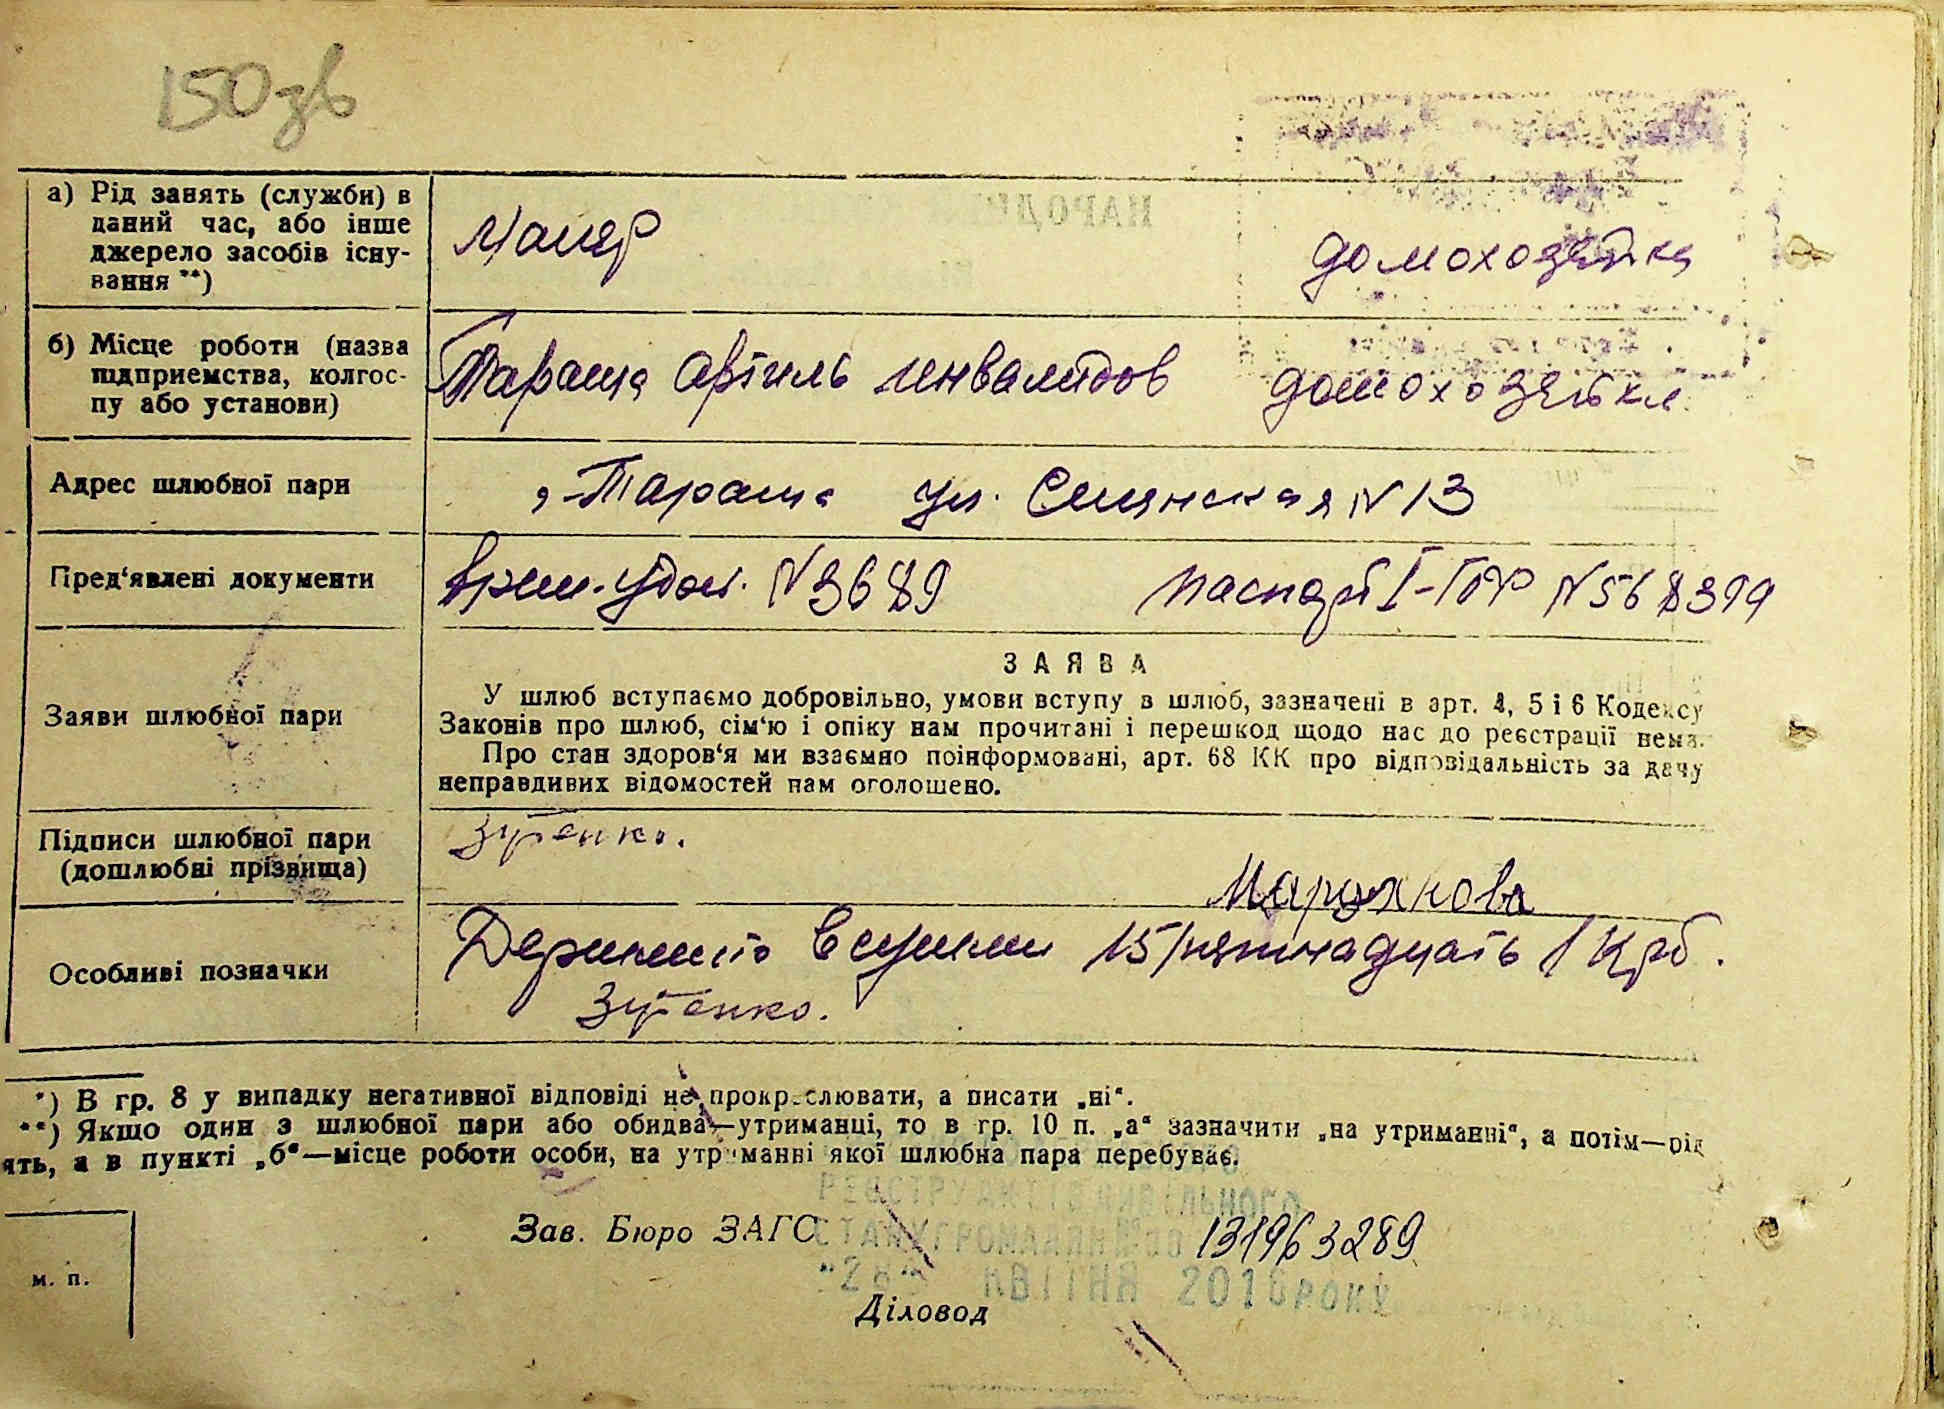 150зв
а) Рід занять (служби) в
даний час, або інше
джерело засобів існу-
вання **)
Маляр
домохозяйка
б) Місце роботи (назва
підприємства, колгос-
пу або установи)
Тараща артиль инвалидов домохозяйка
Адрес шлюбної пари
Тараща ул. Смянская N 13
Пред‘явлені документи
врем. удов. N 3689 паспорт I-ТОР N 568399
Заяви шлюбної пари
ЗАЯВА
У шлюб вступаємо добровільно, умови вступу в шлюб, зазначені в арт. 4, 5 і 6 Кодексу
Законів про шлюб, сім‘ю і опіку нам прочитані і перешкод щодо нас до реєстрації нема.
Про стан здоров‘я ми взаємно поінформовані, арт. 68 КК про відповідальність за дачу
неправдивих відомостей нам оголошено.
Підписи шлюбної пари
(дошлюбні прізвища)
Зутенко.
Особливі позначки
в сумме 15/пятнадцать/ Крб.
Зутенко.
*) В гр. 8 у випадку негативної відповіді не прокреслювати, а писати „ні“.
**) Якщо один з шлюбної пари або обидва—утриманці, то в гр. 10 п. „а“ зазначити „на утриманні“, а потім—рід
ять, а в пункті „б“—місце роботи особи, на утриманні якої шлюбна пара перебуває.
РЕЄСТРУ АКТІВ ЦИВІЛЬНОГО
СТАНУ ГРОМАДЯН ЗА
Зав. Бюро ЗАГС
131963289
"28" КВІТНЯ 2016 РОКУ
м. п.
Діловод